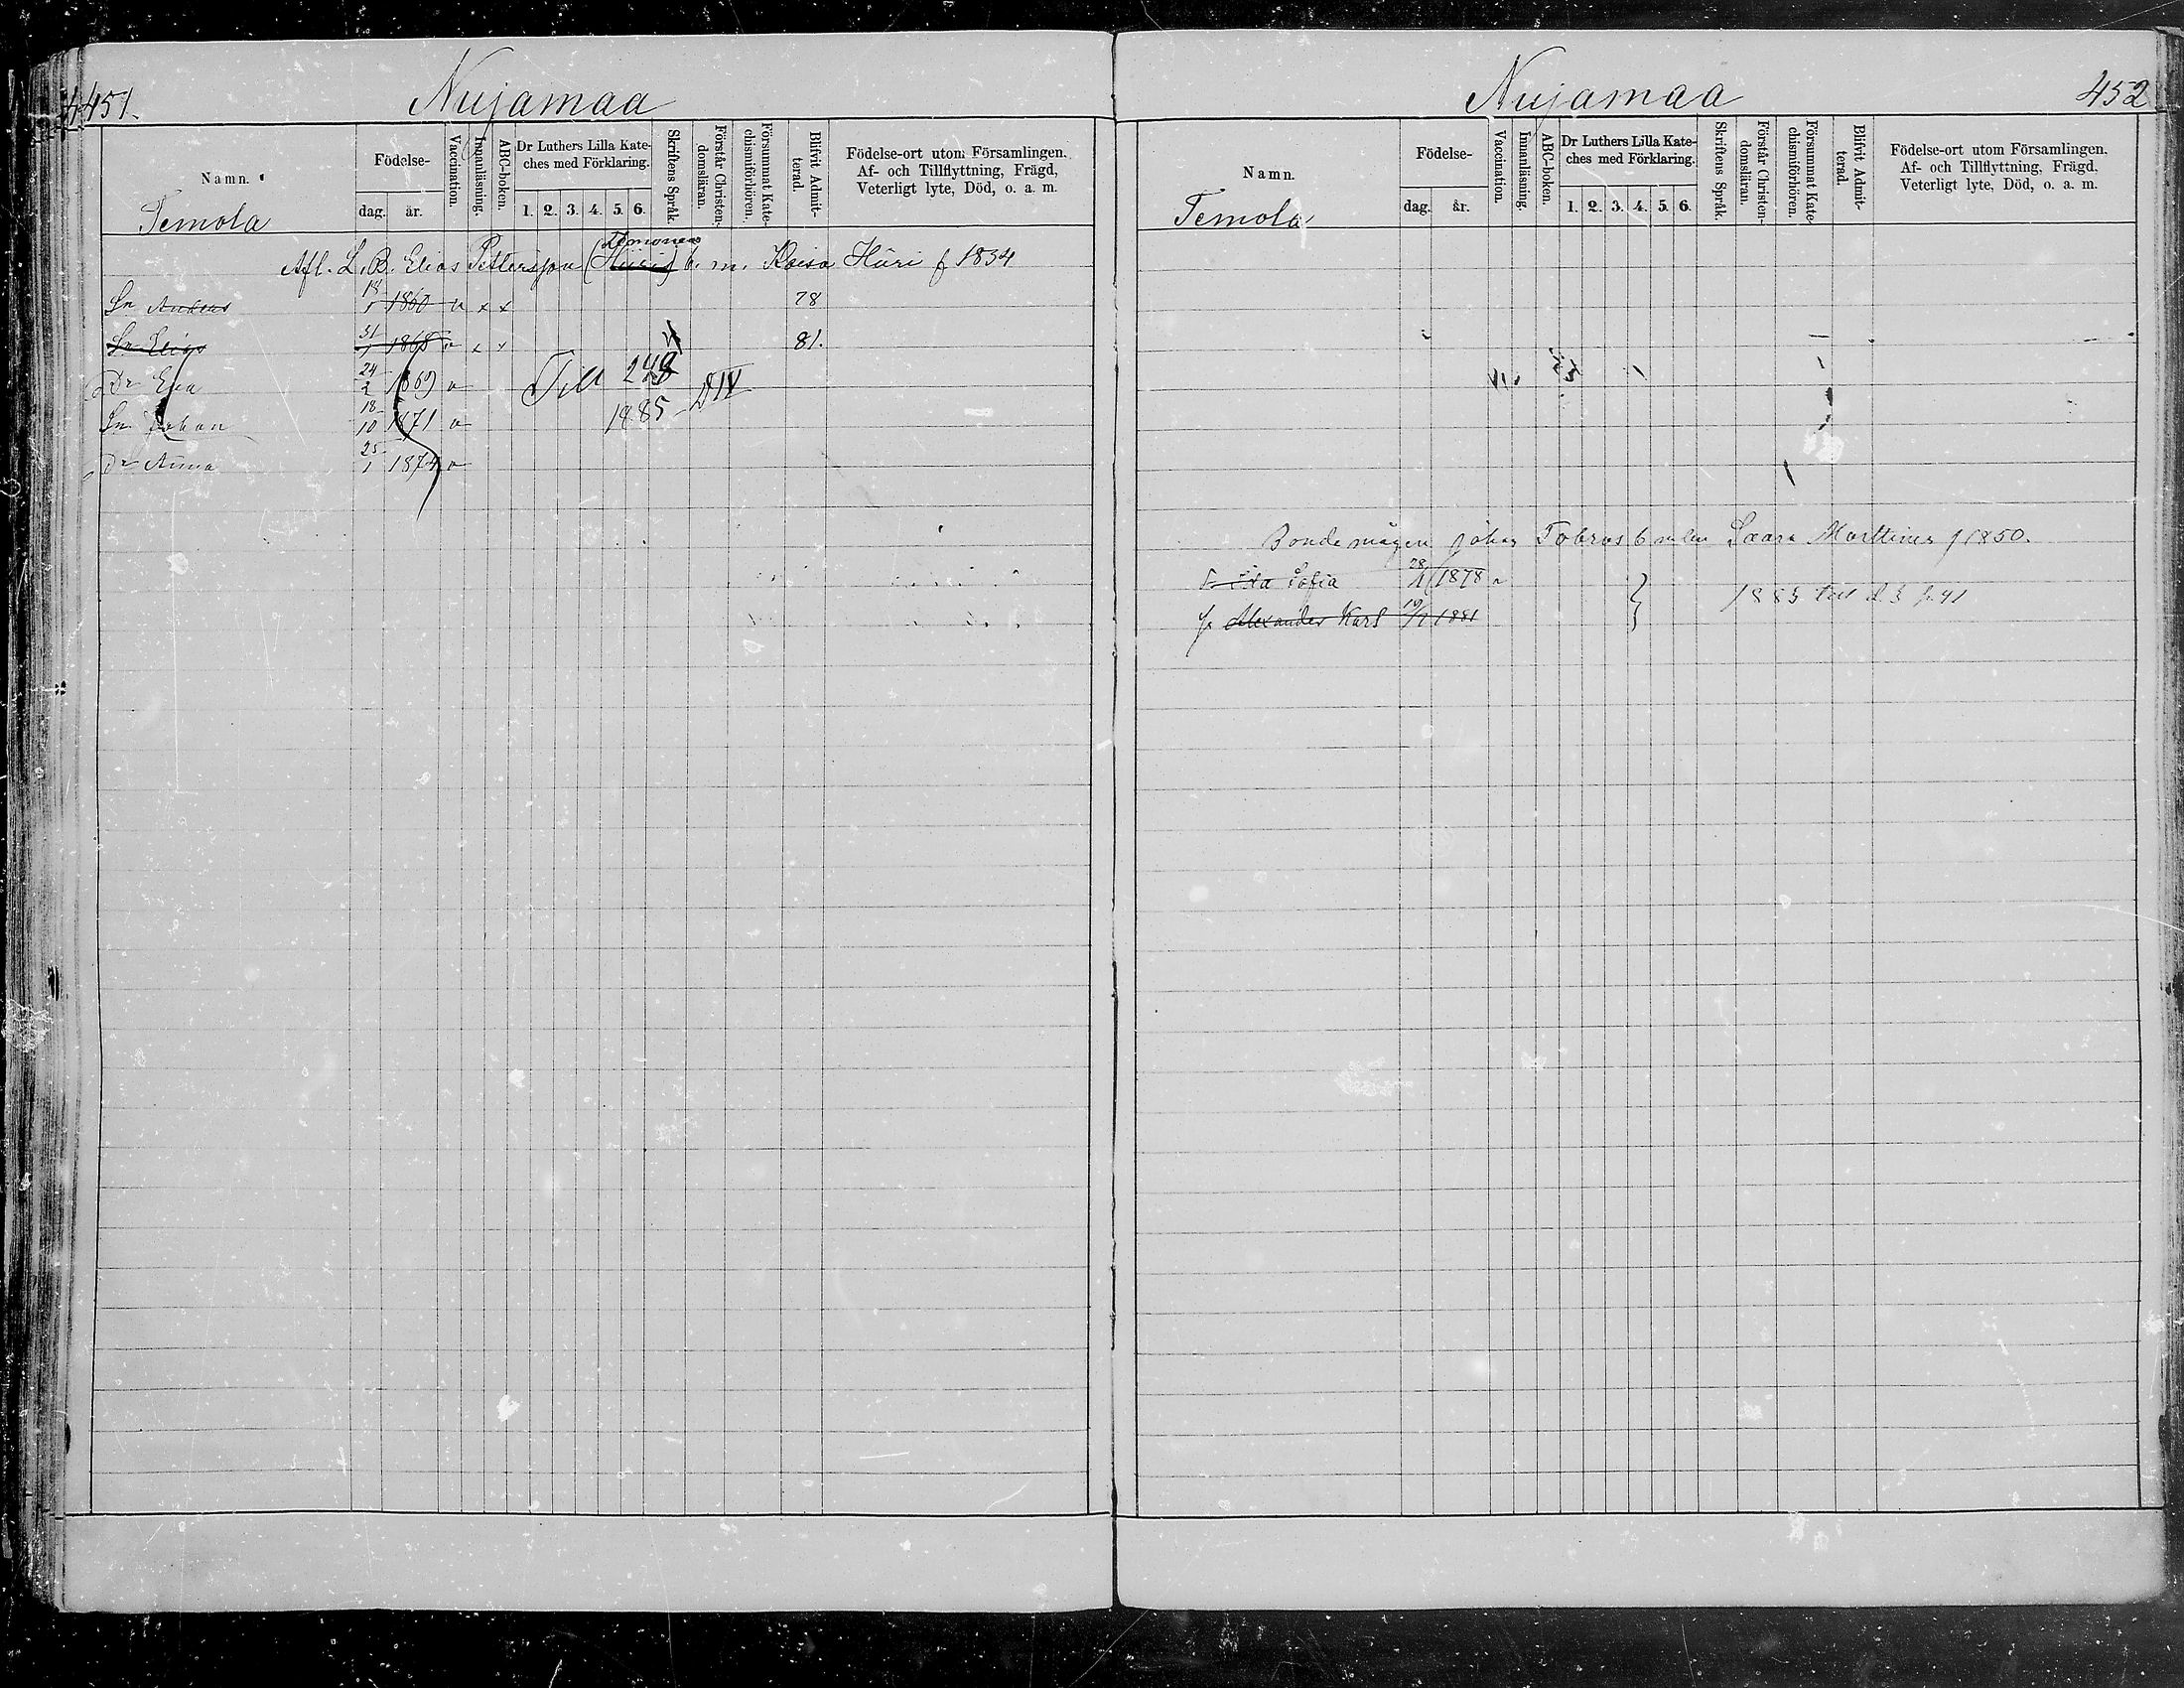 451.
Nujamaa
Namn.
Temola
Födelse-
dag.
år.
Vaccination.
Innanläsning.
ABC-boken.
Dr Luthers Lilla Kate-
ches med Förklaring.
1. 2. 3. 4. 5. 6.
Skriftens Språk.
Förstår Christen-
domsläran.
Försummat Kate-
chismiförhören.
Blifvit Admit-
terad.
Födelse-ort utom Församlingen.
Af- och Tillflyttning, Frägd,
Veterligt lyte, Död, o. a. m.
Afl. L. B. Elias Pettersson (Hüri) b. m. Kaisa Hüri f 1834
Sn Anders 18/1 1860 v x x 78
Sn Elias 31/1 1865 v x x 81.
Dr Eva 24/2 1869 v Till 248
Sn Johan 18/10 1871 v 1885 DIV
Dr Anna 25/1 1874 v
Nujamaa
452
Namn.
Temola
Födelse-
dag.
år.
Vaccination.
Innanläsning.
ABC-boken.
Dr Luthers Lilla Kate-
ches med Förklaring.
1. 2. 3. 4. 5. 6.
Skriftens Språk.
Förstår Christen-
domsläran.
Försummat Kate-
chismiförhören.
Blifvit Admit-
terad.
Födelse-ort utom Församlingen.
Af- och Tillflyttning, Frägd,
Veterligt lyte, Död, o. a. m.
Bondemågen Johan Tobias b m Saara Marttinen f 1850.
Sofia 28/11 1878 v
Alexander Karl 19/1 1881
1885 till d. 3 p. 41